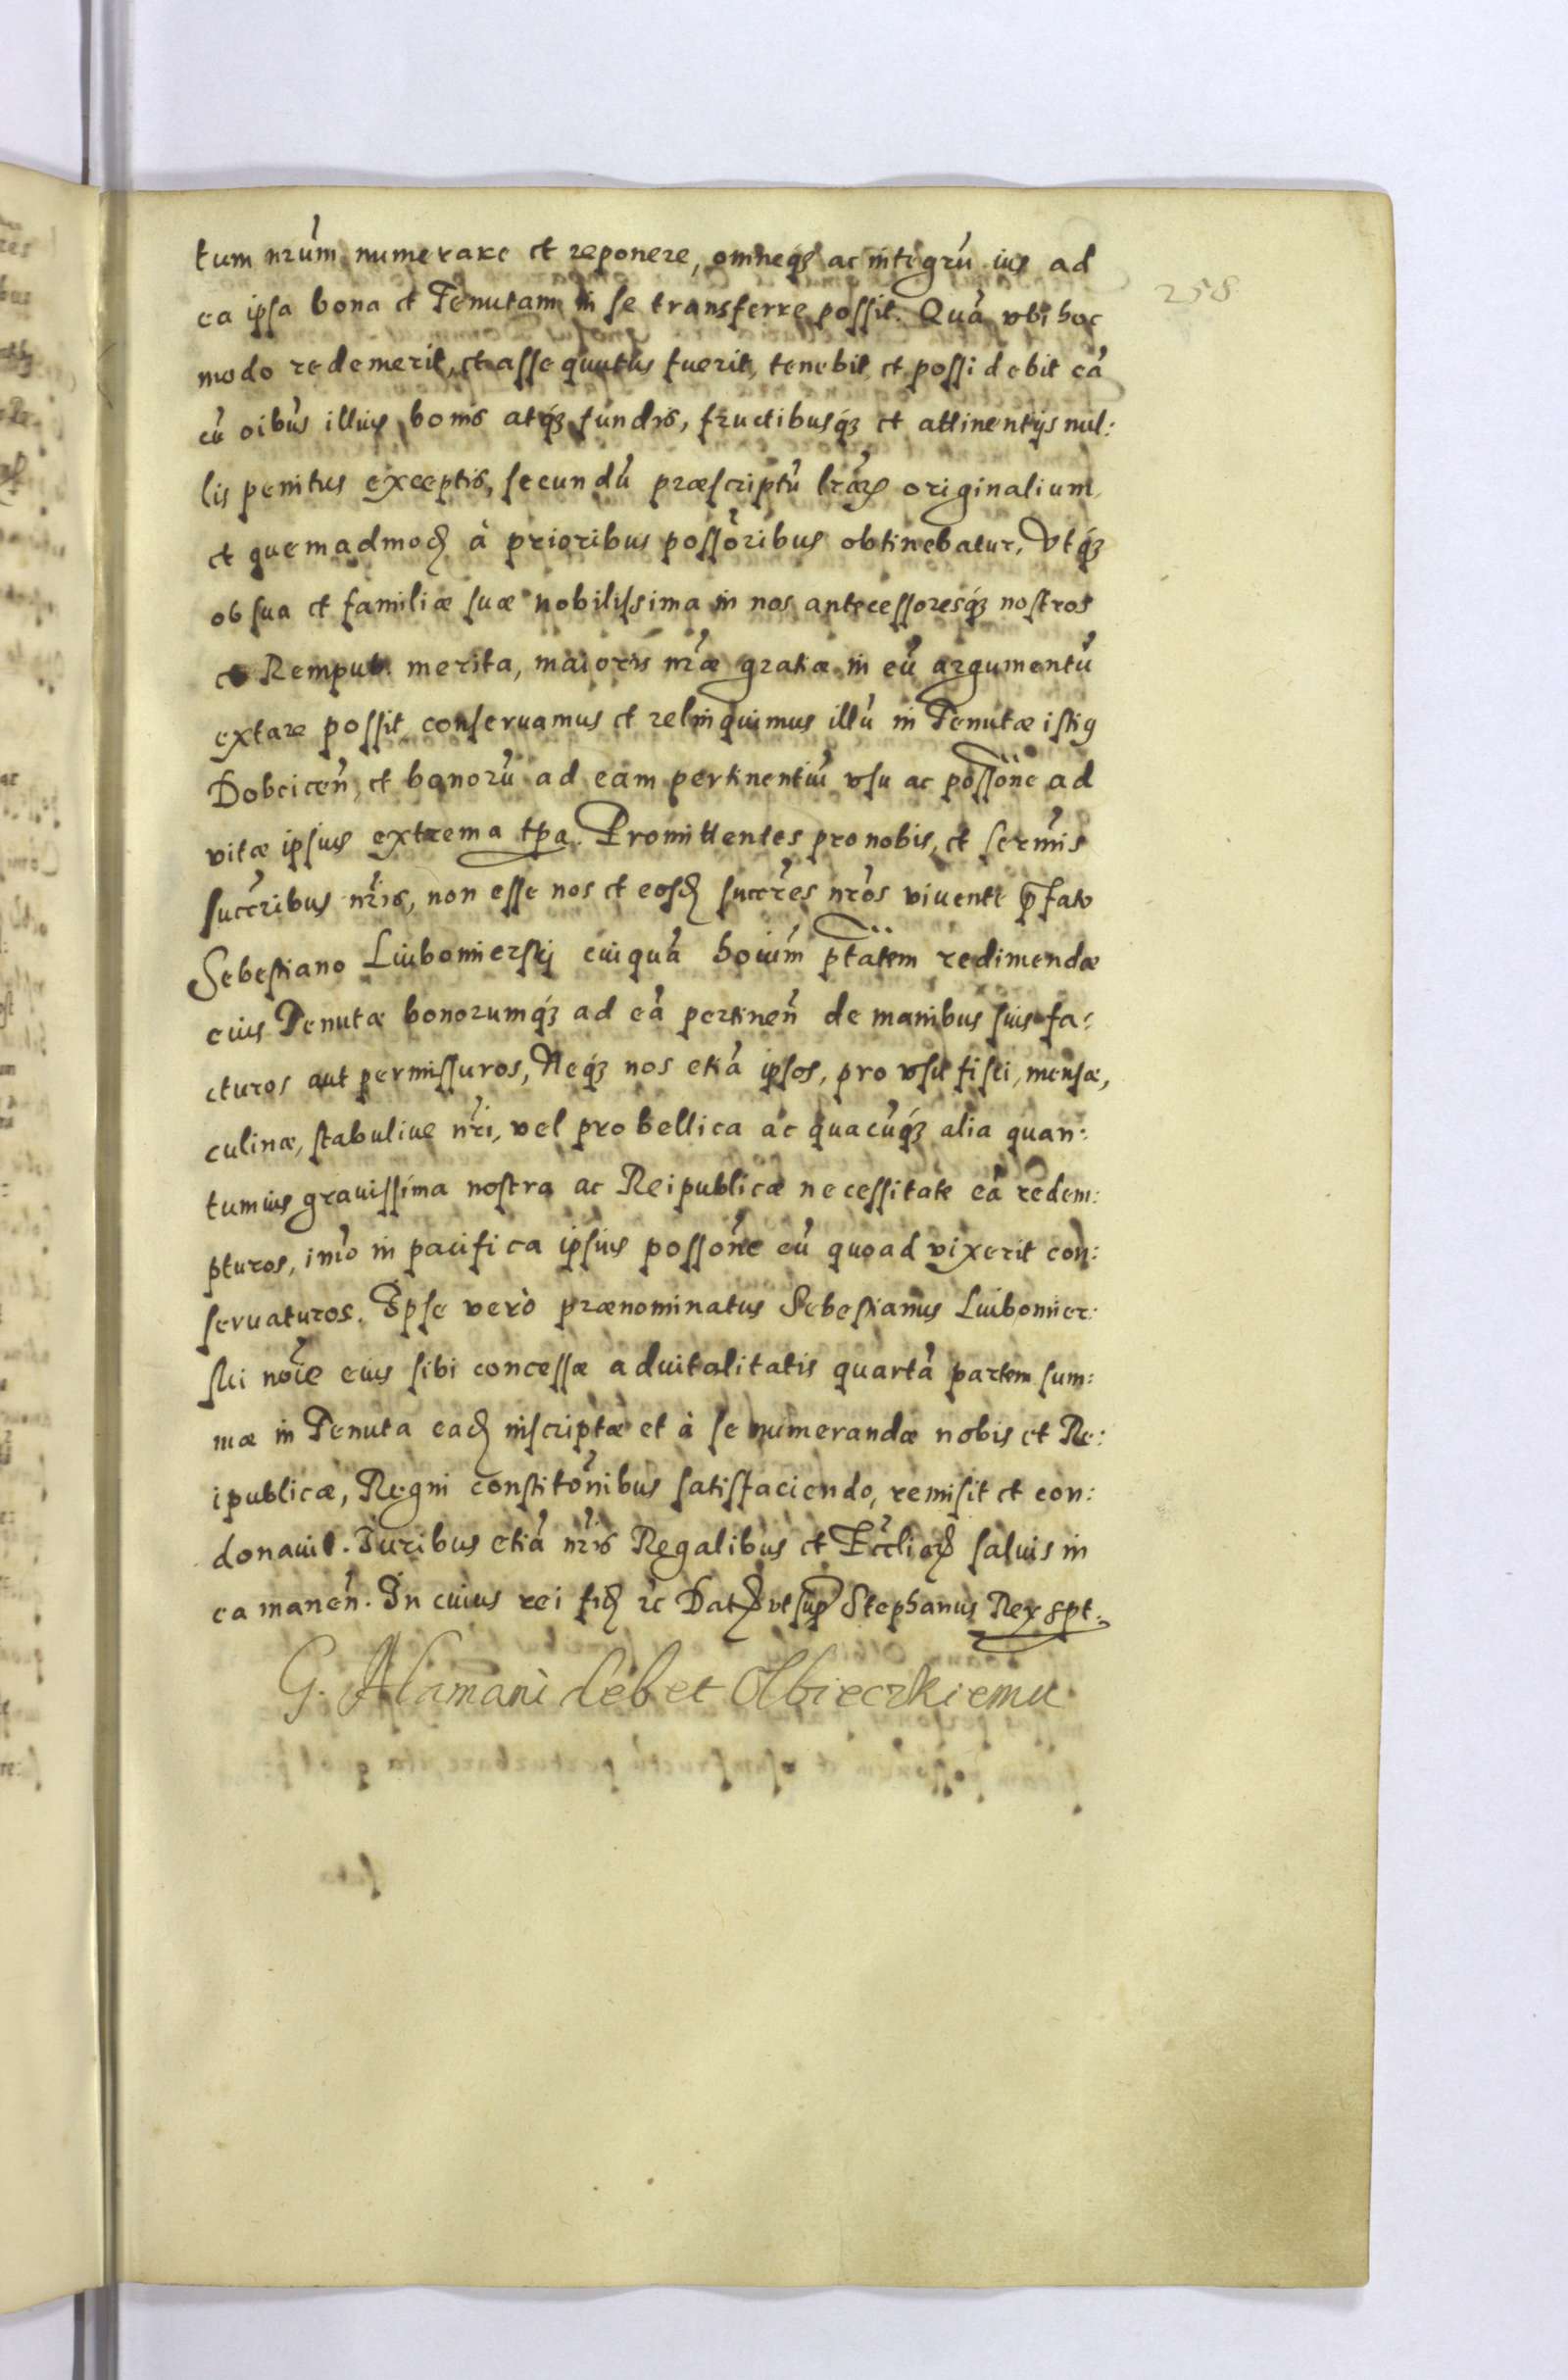 258
tum nrũm numerare et reponere, omneq́3 ac integrũ ius ad
ea ipsa bona et Tenutam in se transferre possit. Quã vbi hoc
modo redemerit, et assequutus fuerit, tenebit et possidebit eã
cũ oibũs illius bonis atq́3 fundis, fructibusq́3 et attinentijs nul:
lis penitus exceptis, secundũ præscriptũ lrãrꝝ originalium
et quemadmoḑ à prioribus possõribus obtinebatur, Vtq́3
ob sua et familiæ suæ nobilissima in nos antecessoresq́3 nostros
et Rempub. merita, maioris nrãæ gratiæ in eũ argumentũ
extare possit conseruamus et relinquimus illũ in Tenutæ istiꝰ
Dobcicen̄, et bonorũ ad eam pertinentiũ vsu ac possõne ad
vitæ ipsius extrema tp̃a. Promittentes pro nobis, et serm̃is
succr̃ibus nr̃is, non esse nos et eosḑ succr̃es nr̃os viuente p̃fato
Sebestiano Liubomierskj cuiquã hoium̃ ptãtem redimendæ
eius Tenutæ bonorumq́3 ad eã pertinen̄ de manibus suis fa:
cturos aut permissuros, Neq́3 nos etiã ipsos, pro vsu fisci, mensæ,
culinæ, stabuliue nr̃i, vel pro bellica ac quacũq́3 alia quan:
tumuis grauissima nostra ac Reipublicæ necessitate eã redem:
pturos, imõ in pacifica ipsius possõne eũ quoad vixerit con:
seruaturos. Ipse verò prænominatus Sebestianus Liubomier:
ski noĩe eius sibi concessæ aduitalitatis quartã partem sum:
mæ in Tenuta eaḑ inscriptæ et à se numerandæ nobis et Re:
ipublicæ, Regni constitõnibus satisfaciendo, remisit et con:
donauit. Iuribus etiã nr̃is Regalibus et Eccliarꝝ saluis in
ea manen̄. In cuius rei fiḑ ꝛc Datꝭ vt sup̃ Stephanus Rex spt.
G. Alamani debet Olbieczkiemu